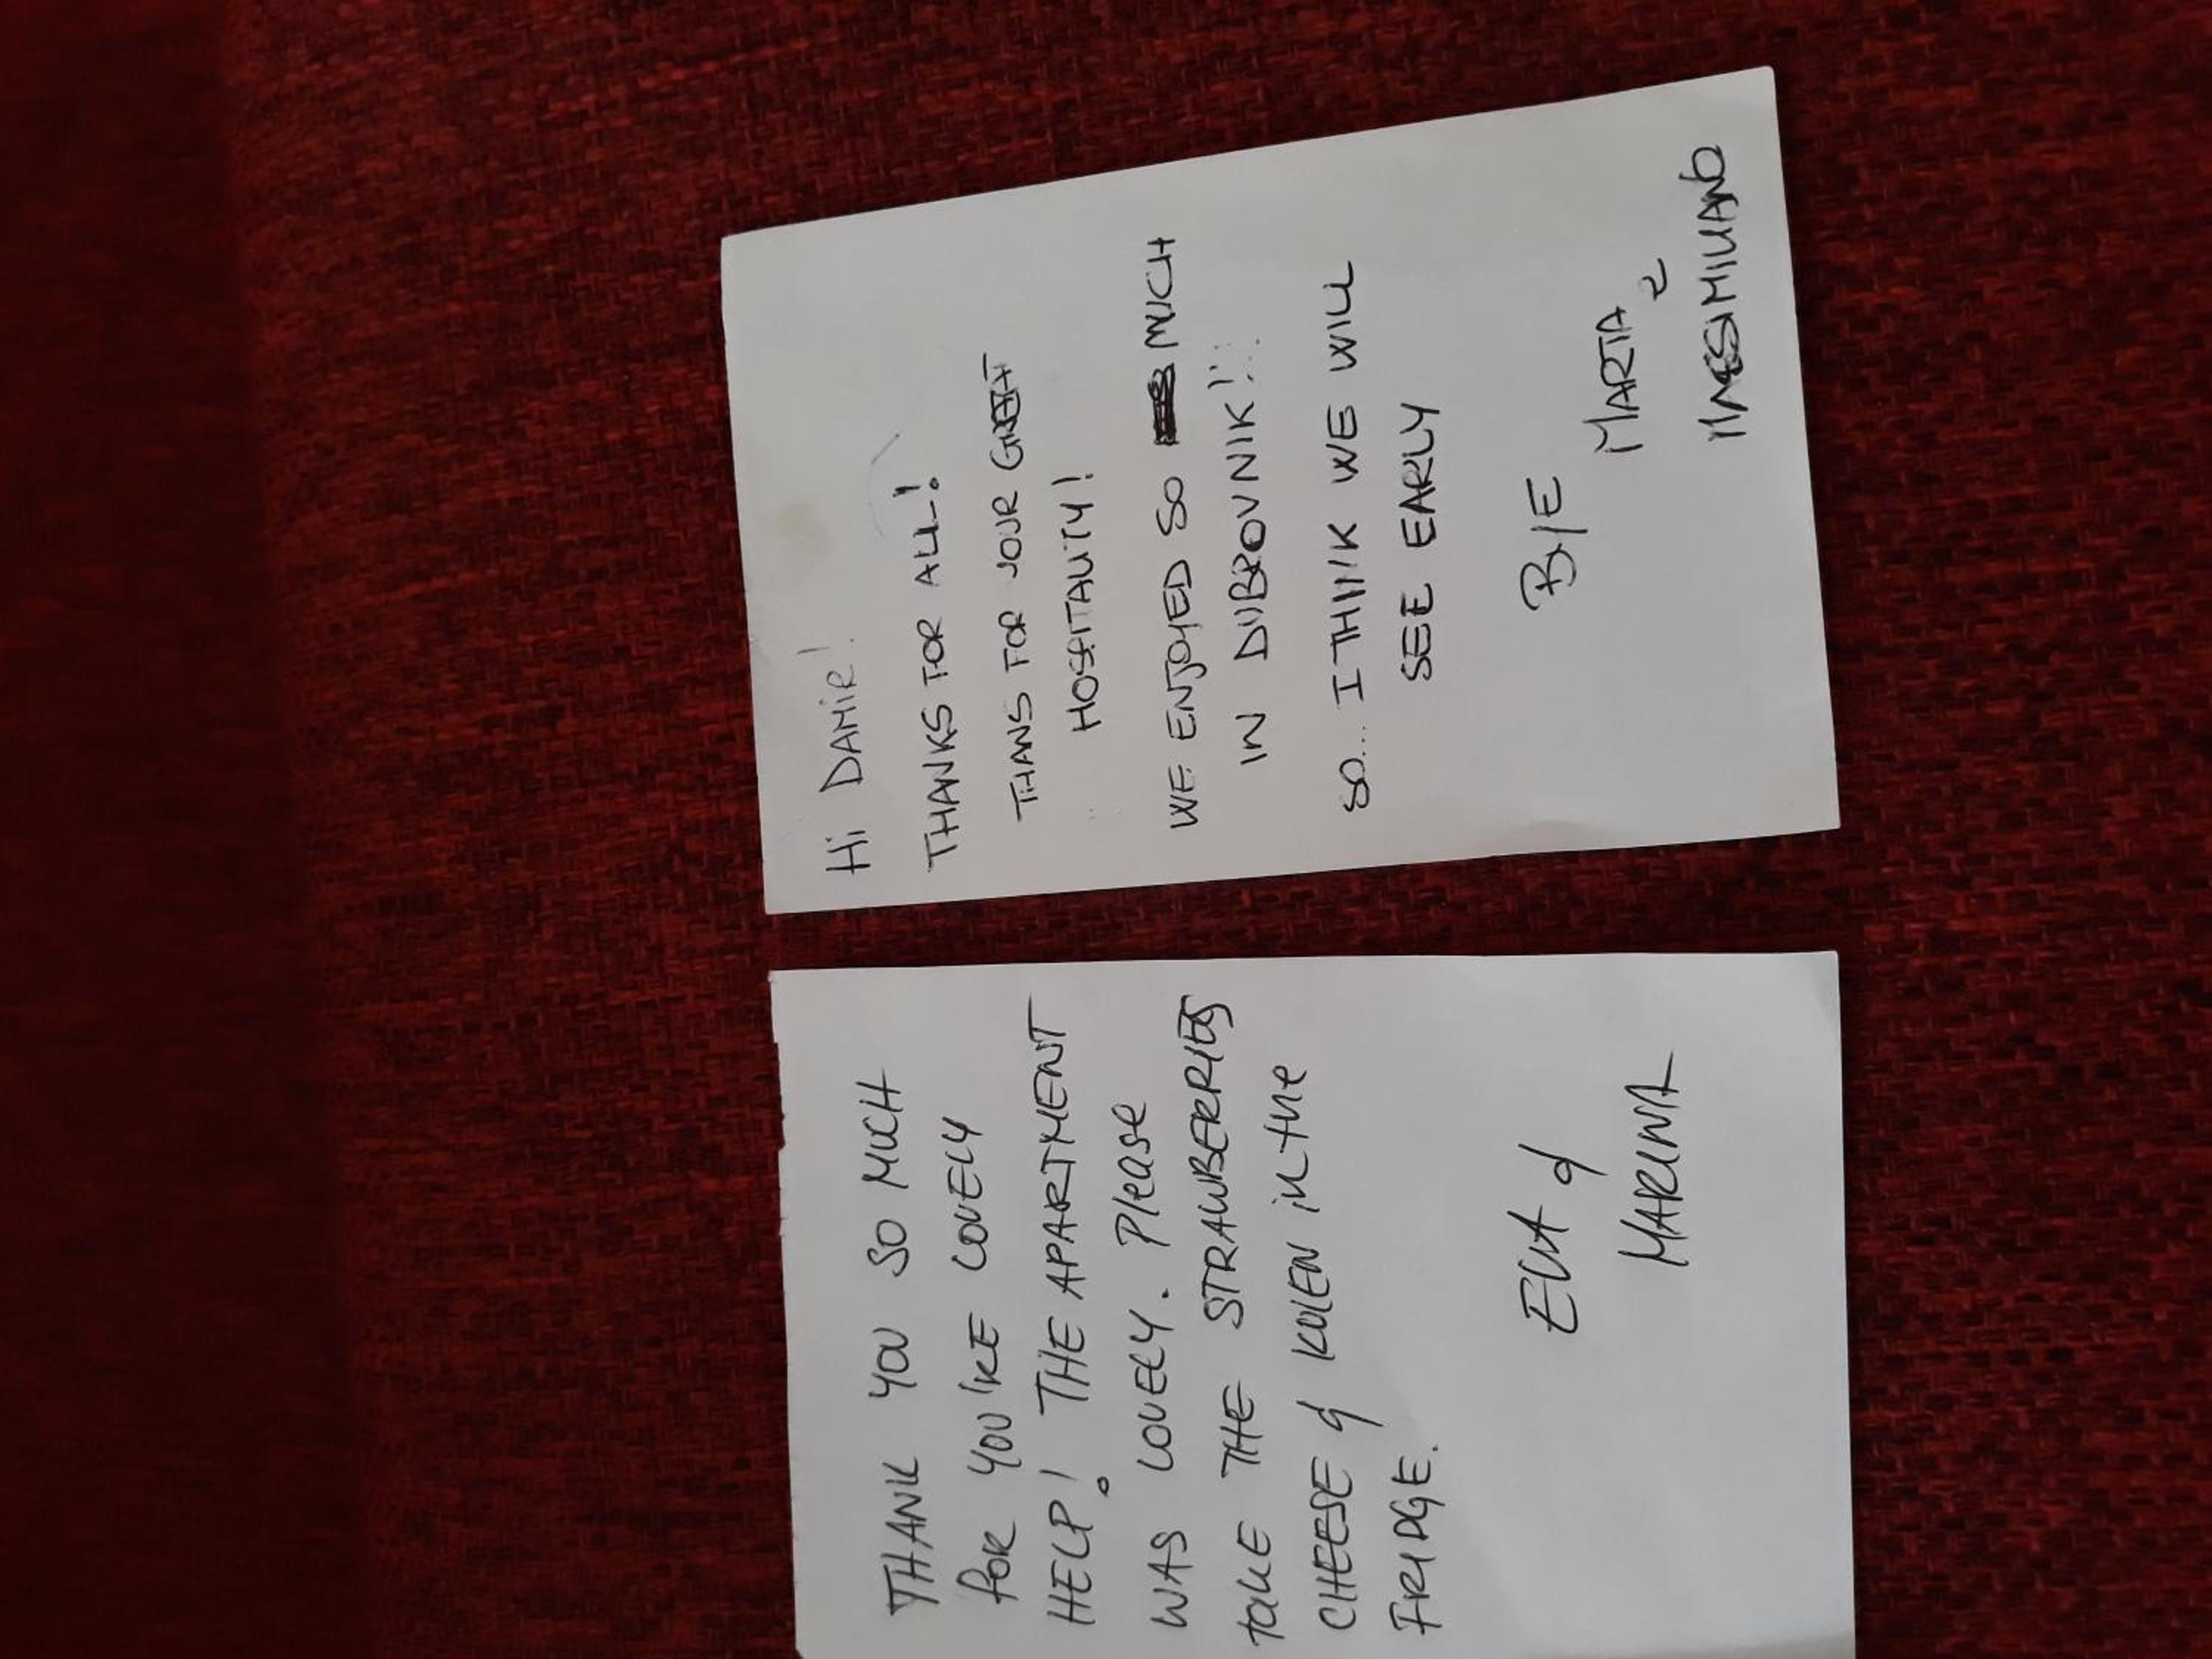 THANK YOU SO MUCH
FOR YOU'RE LOVELY
HELP! THE APARTMENT
WAS LOVELY. Please
take THE STRAWBERRIES
CHEESE & KULEN in the
FRIDGE.
&
MARINA
Hi DAMIR!
THANKS FOR ALL!
THANS FOR JOUR
HOSPITALITY!
WE ENJOYED SO MUCH
IN DUBROVNIK!!
SO... I THINK WE WILL
SEE EARLY
BYE
MARTA e
MASSIMILIANO